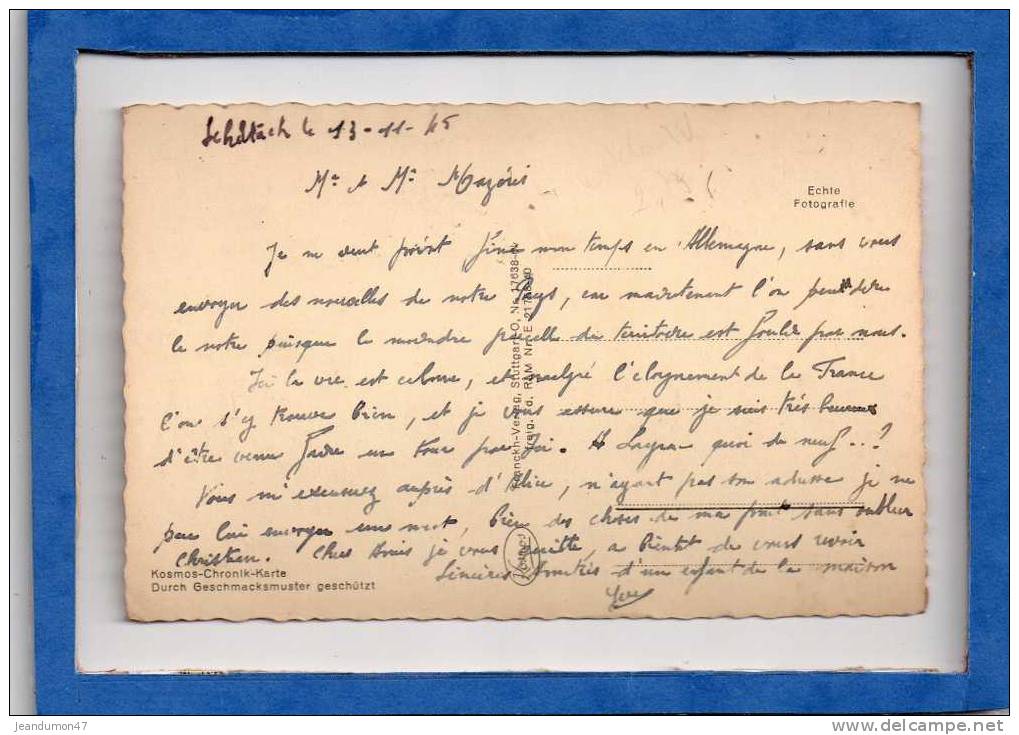 le 13-11-45
Mr & Me Mazéris
Echte
Fotografie
Je ne veut point finir mon temps en Allemagne, sans vous
envoyer des nouvelles de notre Pays, car maintenant l'on peut dire
le notre puisque la moindre parcelle de territoire est foulée par nous.
Ici la vie est calme, et malgré l'eloignement de la France
l'on s'y trouve bien, et je vous assure que je suis très heureux
d'être venu faire un tour par Ici. A quoi de neuf...?
Vous m'excuserez auprès d'Alice, n'ayant pas son adresse je ne
peu lui envoyer un mot, bien des choses de ma part sans oublier
Christian. Chers Amis je vous quitte, a bientot de vous revoir
Sincères Amitiés d'un enfant de la maison
Yves
Kosmos-Chronik-Karte
Durch Geschmacksmuster geschützt
Franckh-Verlag, Stuttgart-O, Nr. 17638-
Kosmos
jeandumon47
www.delcampe.net